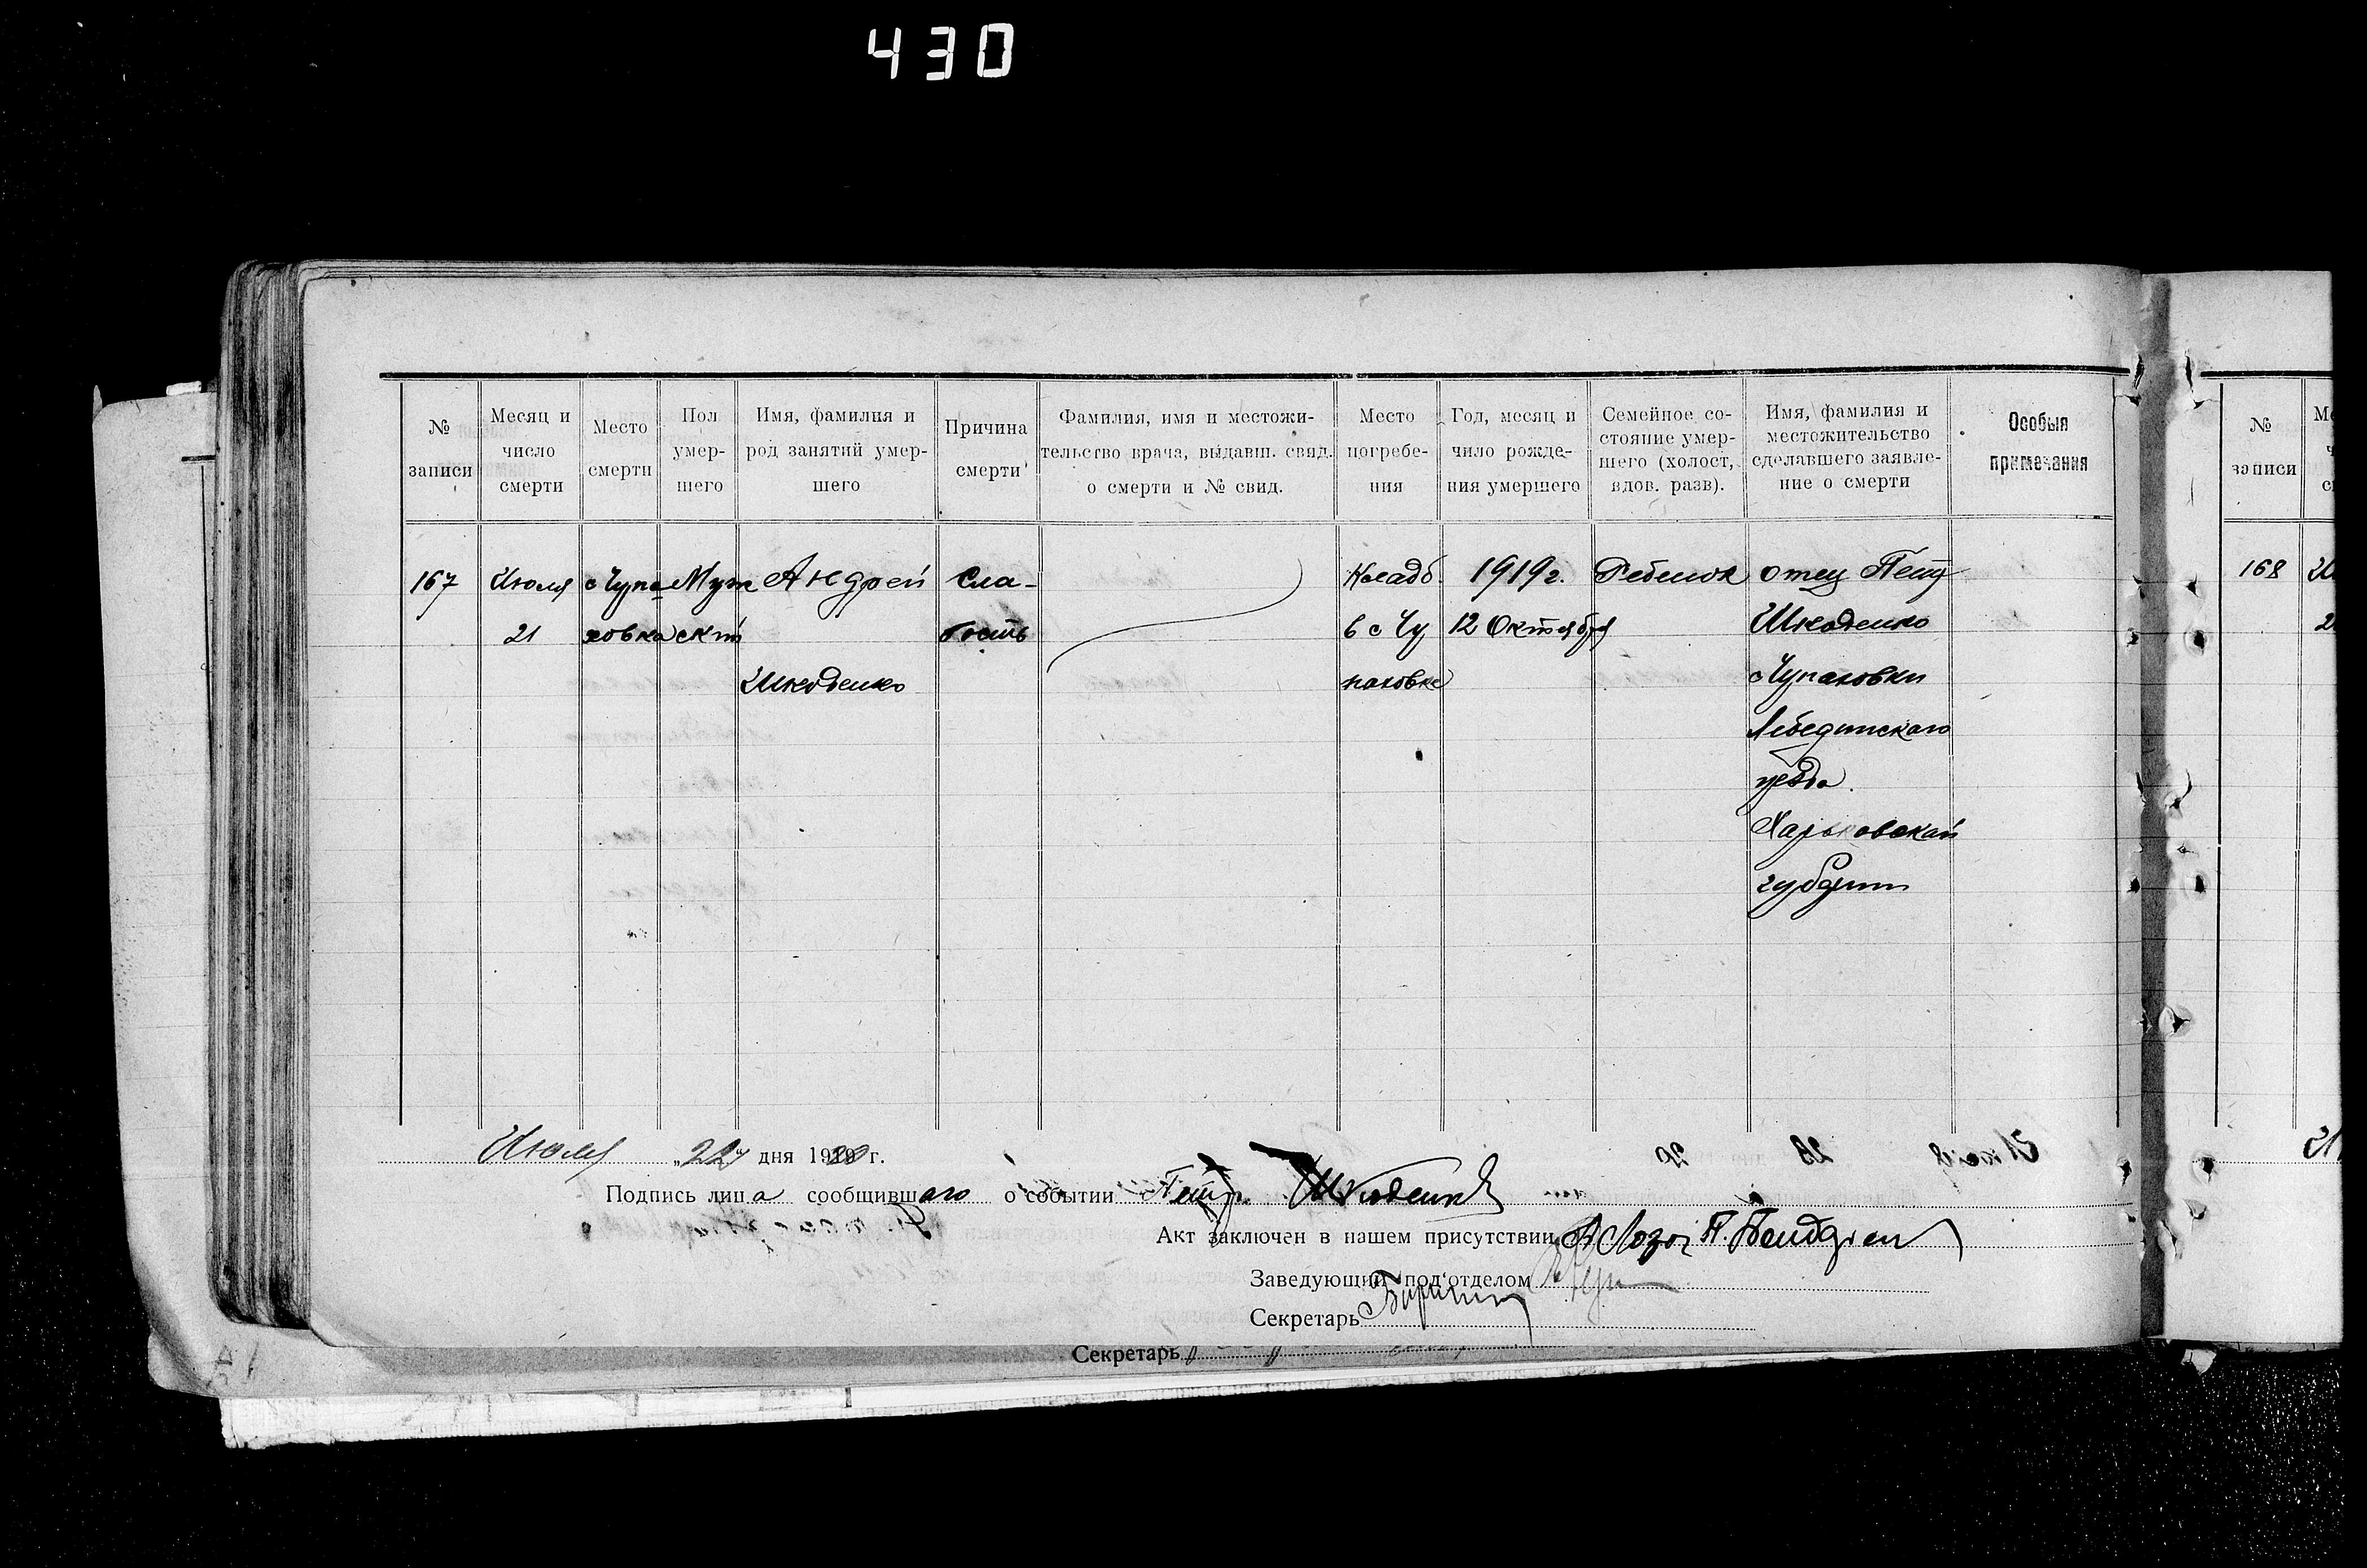 430
№ записи
Месяц и число смерти
Место смерти
Пол умер-шего
Имя, фамилия и род занятий умер-шего
Причина смерти
Фамилия, имя и местожи-тельство врача, выдавш. свид. о смерти и № свид.
Место погребе-ния
Год, месяц и чило рожде-ния умершего
Семейное со-стояние умер-шего (холост, вдов. разв).
Имя, фамилия и местожительство сделавшего заявле-ние о смерти
Особыя примечания
№ записи
167 Июля с Чупа- Муж Андрей Сла- Кладб. 1919 г. Ребенок отец Петр 168
21 ховка ской бость в с Чу 12 Октября Шкоденко
Шкоденко паховке с Чупаховки
Лебединскаго
уезда.
Харьковской
губернии
Июля „22“ дня 1920 г.
Подпись лица сообщившаго о событии Петр Шкоденко
Акт заключен в нашем присутствии
Заведующий под'отделом
Секретарь
Секретарь